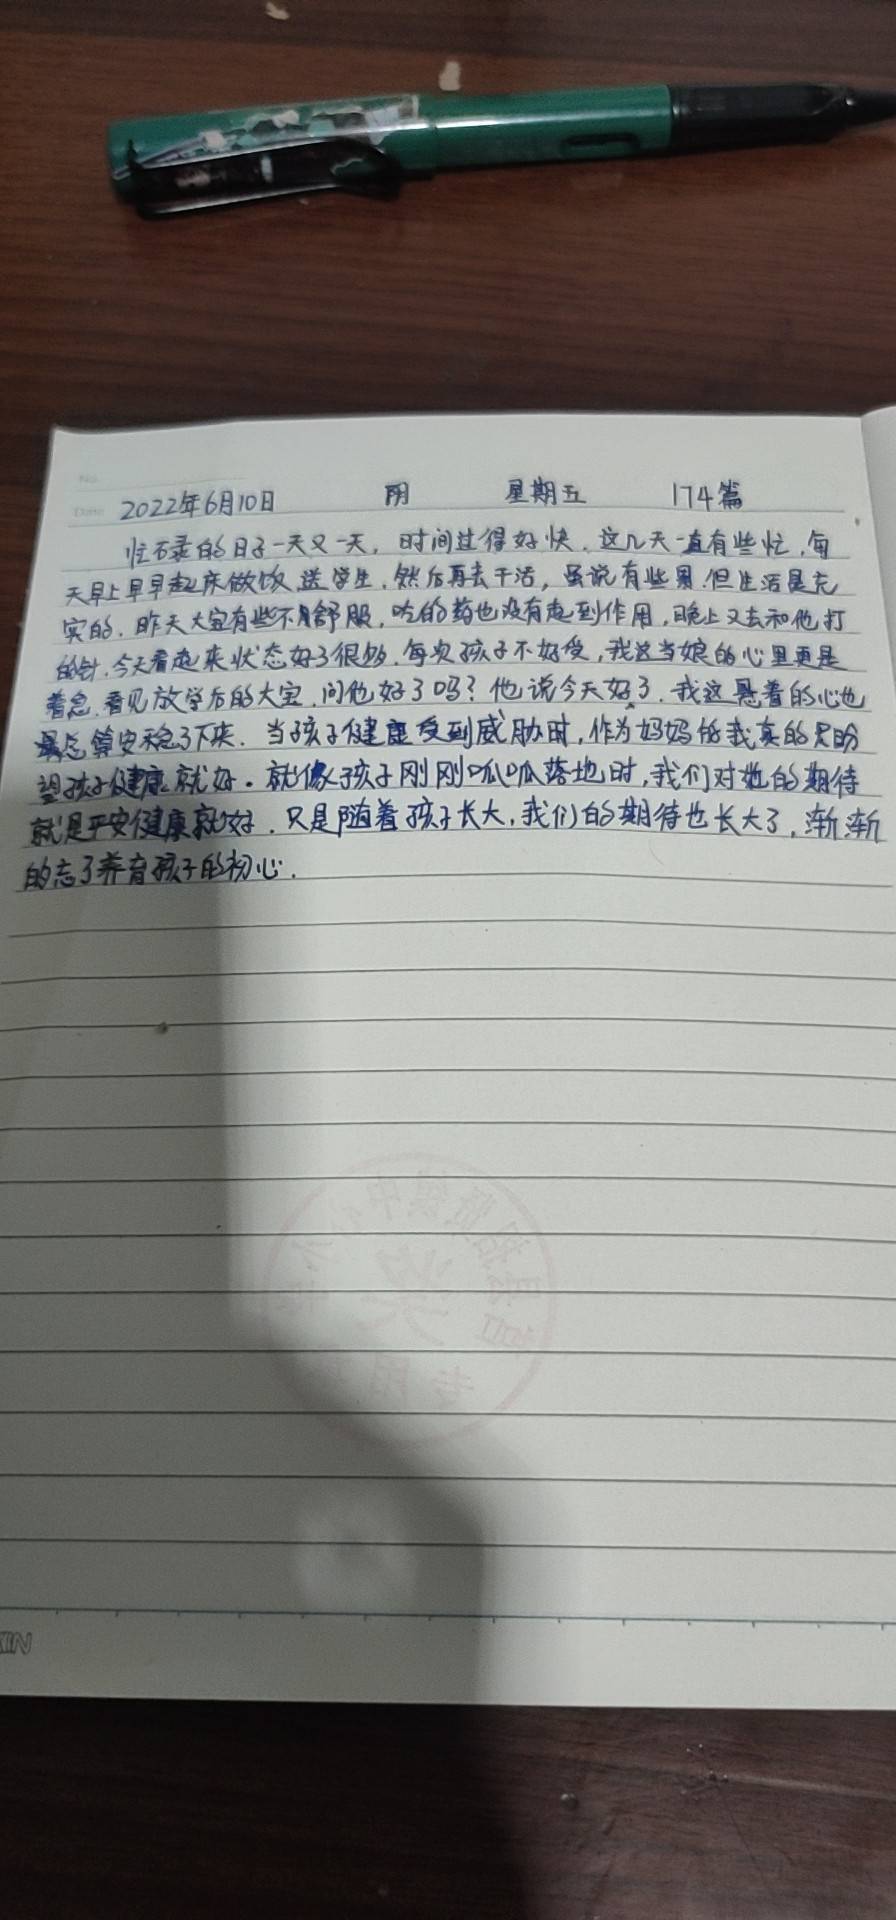 No.
Date 2022年6月10日 阴 星期五 174篇
忙碌的日子一天又一天，时间过得好快，这几天一直有些忙，每
天早上早早起床做饭送学生，然后再去干活，虽说有些累，但生活是充
实的。昨天大宝有些不舒服，吃的药也没有起到作用，晚上又去和他打
的针，今天看起来状态好了很多，每次孩子不好受，我这当娘的心里更是
着急，看见放学后的大宝，问他好了吗？他说今天好了，我这悬着的心也
总算安稳了下来。当孩子健康受到威胁时，作为妈妈的我真的只盼
望孩子健康就好。就像孩子刚刚呱呱落地时，我们对她的期待
就是平安健康就好，只是随着孩子长大，我们的期待也长大了，渐渐
的忘了养育孩子的初心。